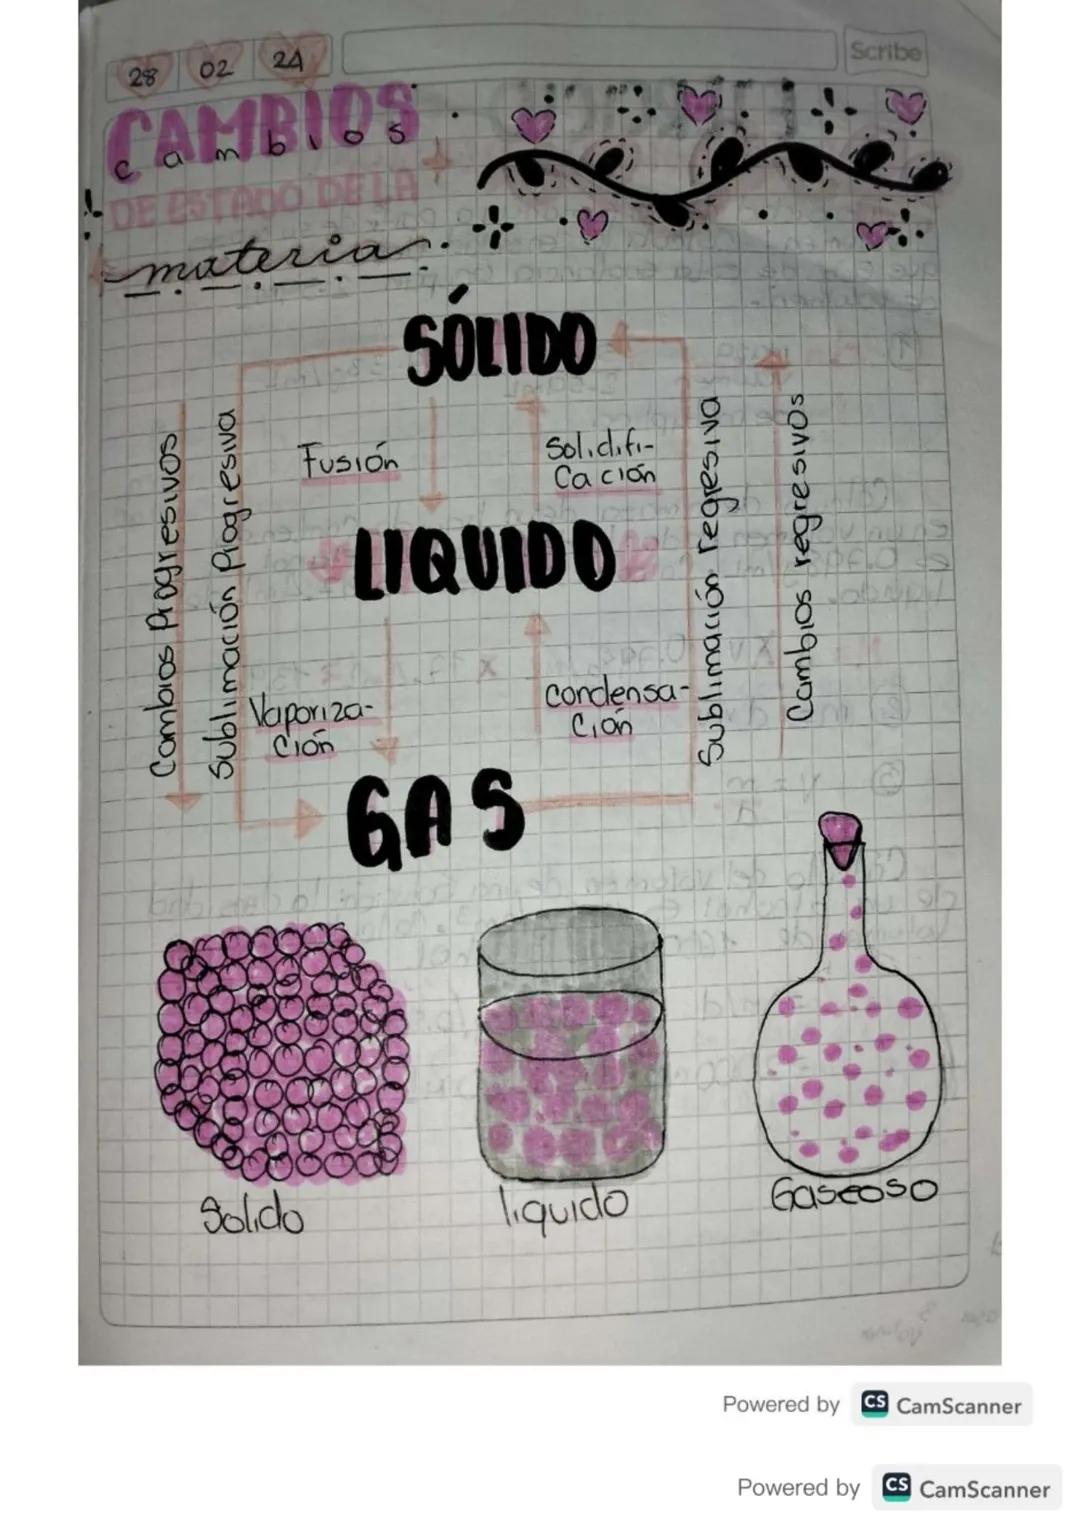 28 02 24
Scribe
CAMBIOS
cambios
DE ESTADO DE LA
materia
SÓLIDO
Cambios Progresivos
Sublimación Progresiva
Fusión
Solidifi-
Cación
Sublimación regresiva
Cambios regresivos
LIQUIDO
Vaporiza-
ción
condensa-
ción
GAS
Solido
liquido
Gaseoso
Powered by CS CamScanner
Powered by CS CamScanner